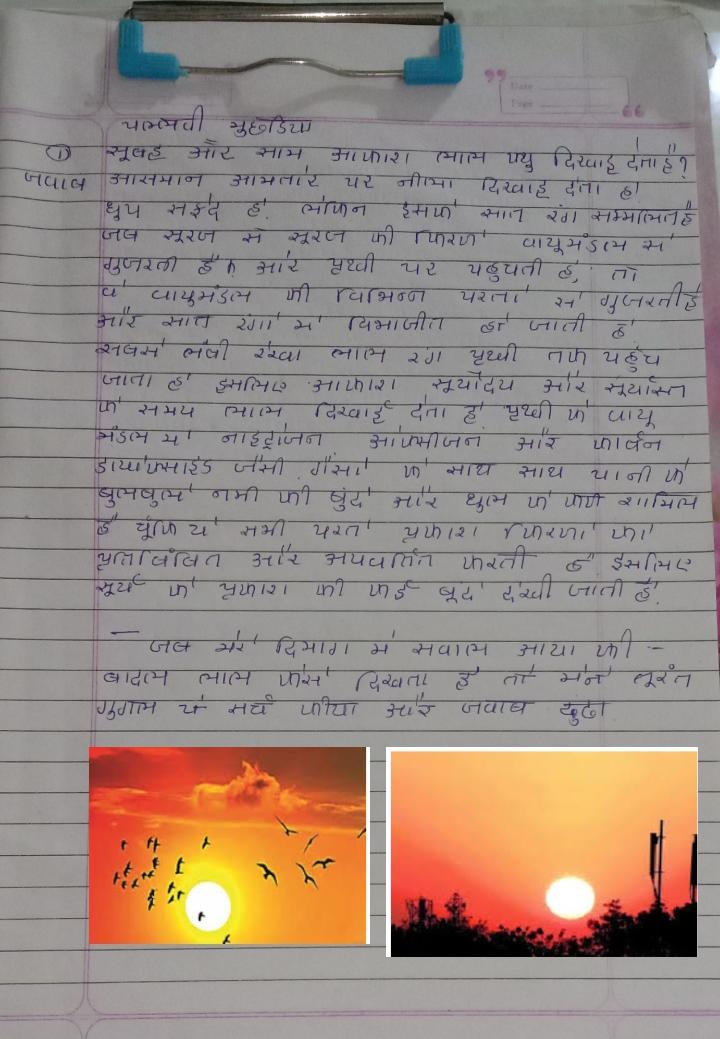 पाल्लवी मुछडिया
① सूबह और साम आकाश लाल क्यु दिखाई देता है?
जवाब आसमान आमतौर पर नीला दिखाई देता है
धूप सफ़ेद है. लेकिन इसके सात रंग सम्मलित है
जब सूरज से सूरज की किरणे वायूमंडल से
गुजरती है और पृथ्वी पर पहुंचती है, तो
वे वायूमंडल की विभिन्न परतो से गुजरती है
और सात रंगो में विभाजीत हो जाती है
सबसे लंबी रेखा लाल रंग पृथ्वी तक पहुंच
जाता है इसलिए आकाश सूर्योदय और सूर्यास्त
के समय लाल दिखाई देता है पृथ्वी के वायू
मंडल में नाइट्रोजन ओक्सीजन और कार्बन
डायोक्साइड जैसी गैसो के साथ साथ पानी के
बुलबुले नमी की बुंदे और धूल के कण शामिल
है चूंकि ये सभी परते प्रकाश किरणो को
प्रतिबिंबित और अपवर्तित करती है इसलिए
सूर्य के प्रकाश की कई बूंदे देखी जाती है.
— जब मेरे दिमाग में सवाल आया की -
बादल लाल कैसे दिखता है तो मेने तूरंत
गुगल पे सर्च कीया और जवाब ढुंढा
Date
Page